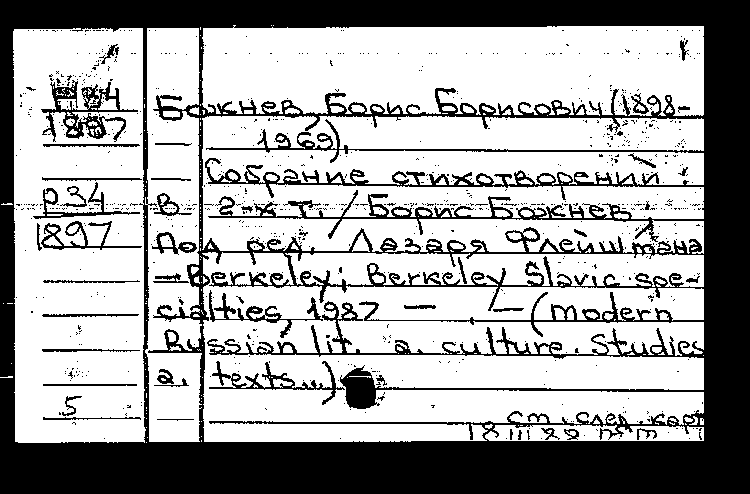 Р34
1897
Божнев, Борис Борисович (1898-
1969).
Собрание стихотворений :
Р34
1897
в 2-х т. / Борис Божнев ;
Под ред. Лазаря Флейшмана
— Berkeley; Berkeley Slavic spe-
cialties, 1987 — . — (modern
Russian lit. a. culture. Studies
a. texts...)
5
см. след. карт